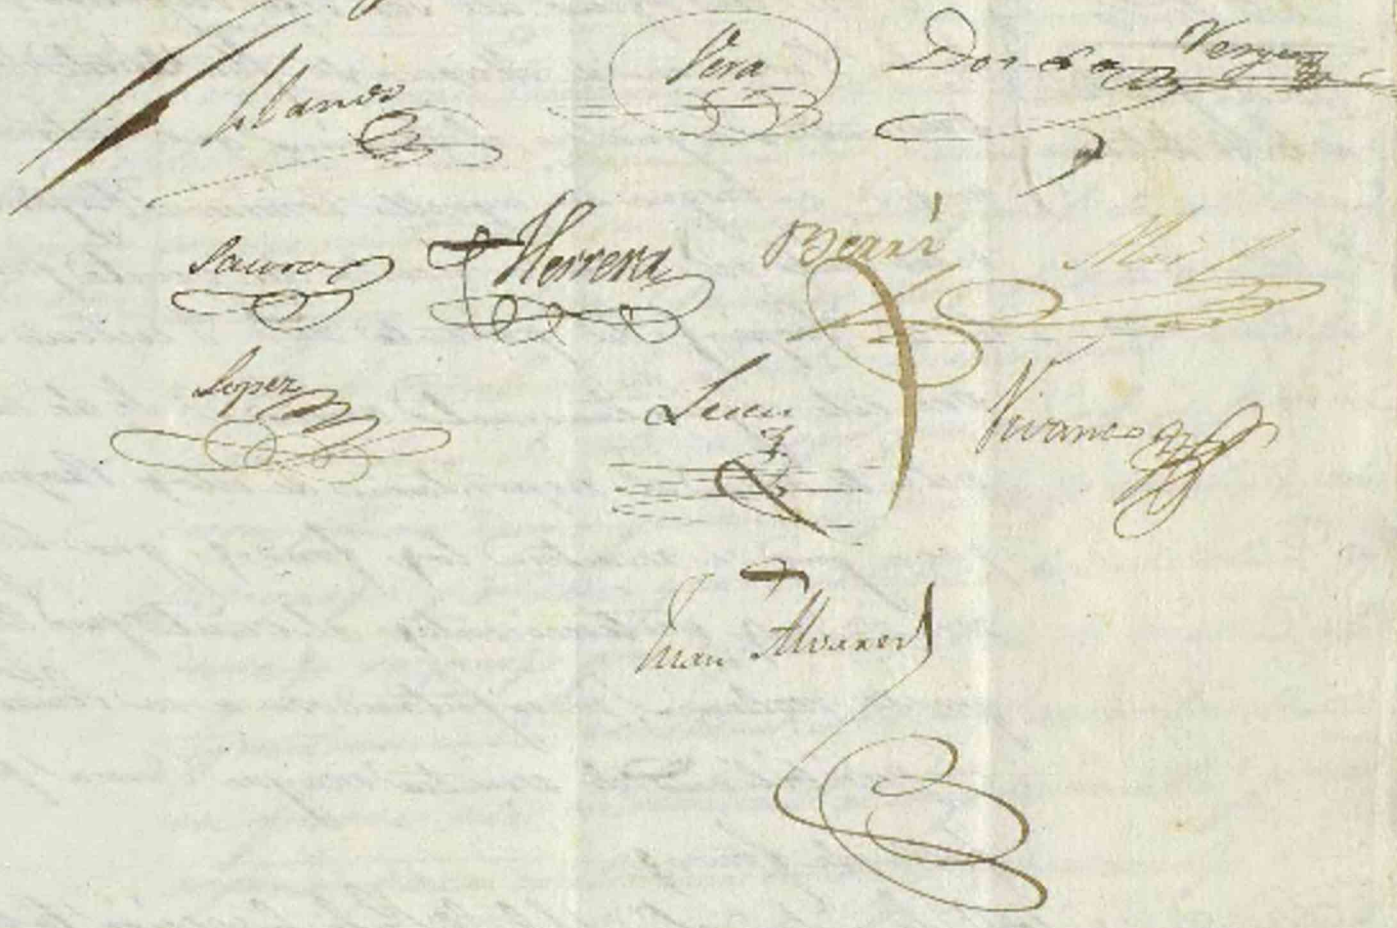 Llanos Vera Dorda Verges
Saura Herrera Berri Mir
Lopez Vivanco
Juan Alvarez